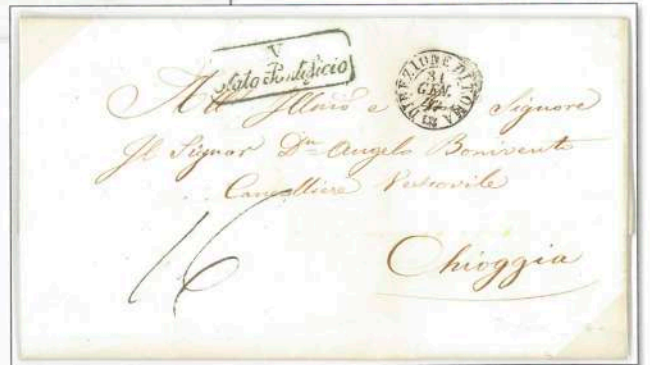 V
Stato Pontificio
DIREZIONE DI ROMA
31
GEN.
All' Illmo e Signore
Il Signor Dn Angelo Bonivento
Cancelliere Vescovile
16
Chioggia